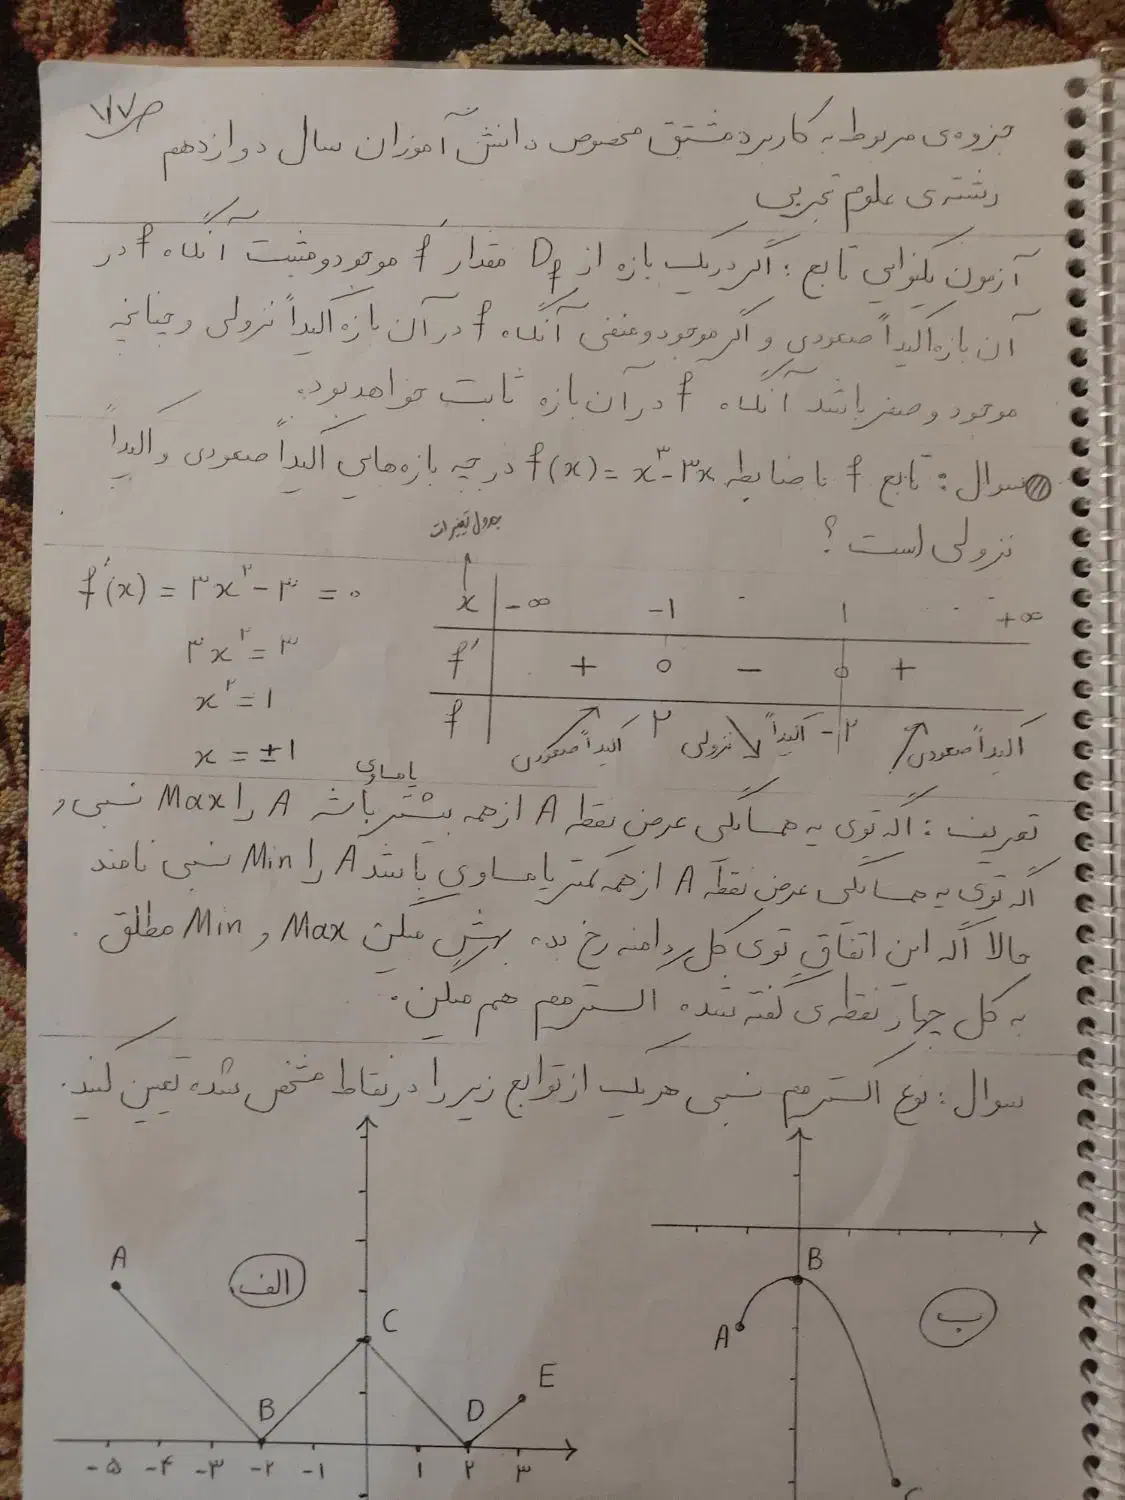 ص ۱۷
جزوه‌ی مربوط به کاربرد مشتق مخصوص دانش آموزان سال دوازدهم
رشته‌ی علوم تجربی
آزمون یکنوایی تابع : اگر در یک بازه از Df مقدار f′ موجود و مثبت آنگاه f در
آن بازه اکیداً صعودی و اگر موجود و منفی آنگاه f در آن بازه اکیداً نزولی و چنانچه
موجود و صفر باشد آنگاه f در آن بازه ثابت خواهد بود.
سوال : تابع f با ضابطه f(x) = x³ - ۳x در چه بازه‌هایی اکیداً صعودی و اکیداً
نزولی است ؟
جدول تغییرات
f′(x) = ۳x² - ۳ = ۰
x -∞ -1 1 +∞
۳x² = ۳
f′ + 0 - 0 +
x² = 1
f اکیداً صعودی ۲ اکیداً نزولی -۲ اکیداً صعودی
x = ±1
یا مساوی
تعریف : اگه توی یه همسایگی عرض نقطه A از همه بیشتر باشه A را Max نسبی و
اگه توی یه همسایگی عرض نقطه A از همه کمتر یا مساوی باشد A را Min نسبی نامند
حالا اگه این اتفاق توی کل دامنه رخ بده بهش میگن Max و Min مطلق .
به کل چهار نقطه‌ی گفته شده اکسترمم هم میگن .
سوال : نوع اکسترمم نسبی هر یک از توابع زیر را در نقاط مشخص شده تعیین کنید.
الف
A
B
C
D
E
-۵ -۴ -۳ -۲ -۱ ۱ ۲ ۳
ب
B
A
C